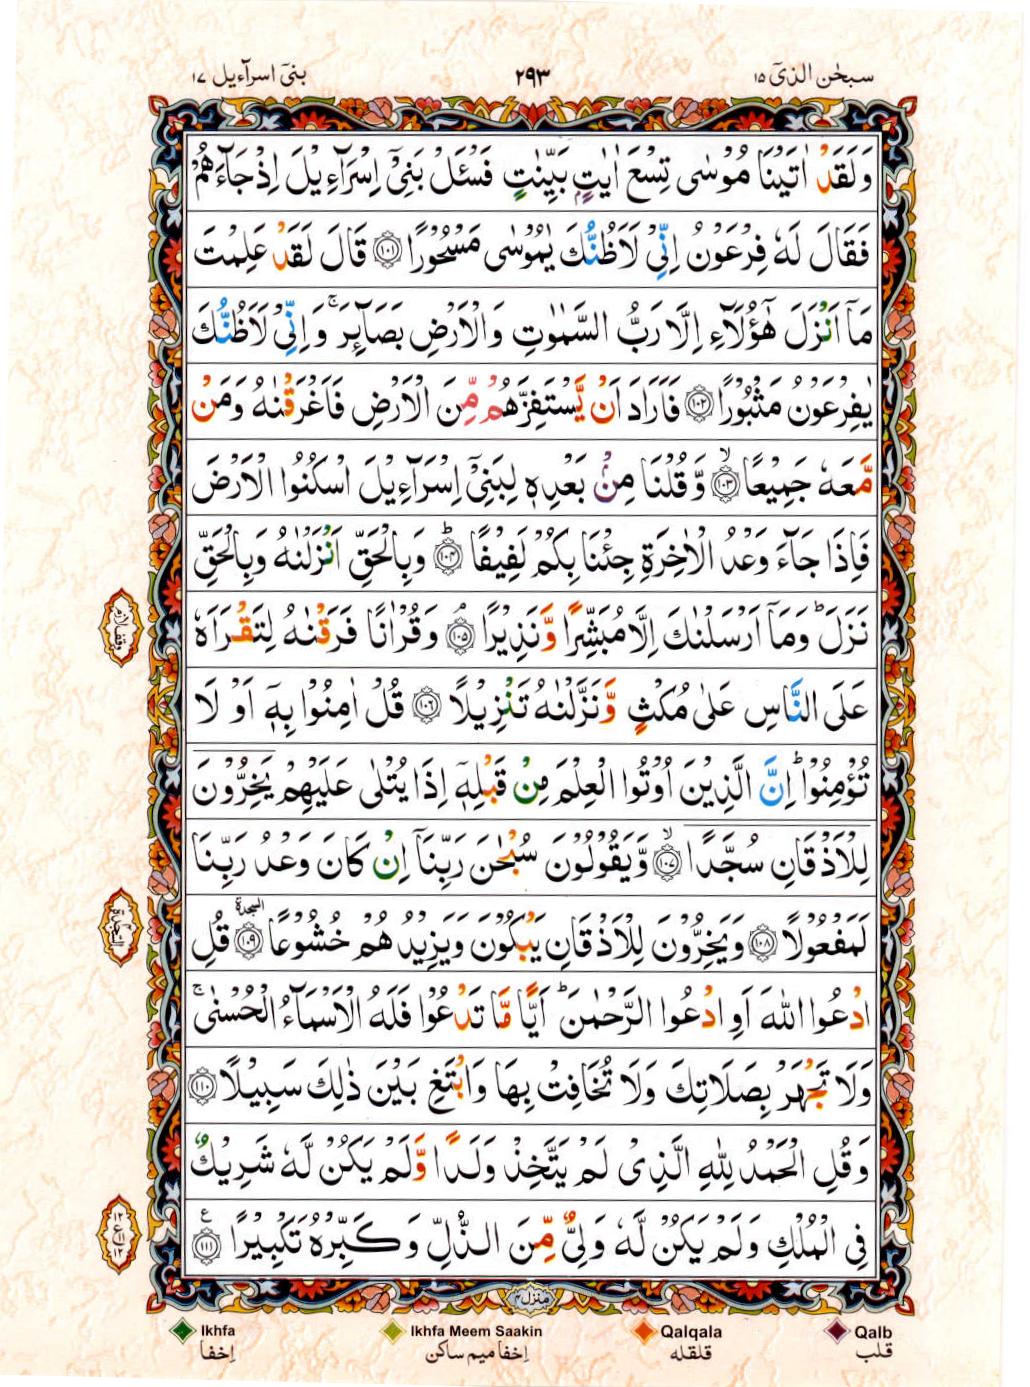 سبحٰن الذیٓ ۱۵
۲۹۳
بنیٓ اسرآءیل ۱۷
وَلَقَدْ اٰتَیْنَا مُوْسٰی تِسْعَ اٰیٰتٍۭ بَیِّنٰتٍ فَسْـَٔلْ بَنِیْۤ اِسْرَآءِیْلَ اِذْ جَآءَهُمْ
فَقَالَ لَهٗ فِرْعَوْنُ اِنِّیْ لَاَظُنُّكَ یٰمُوْسٰی مَسْحُوْرًا ﴿۱۰۱﴾ قَالَ لَقَدْ عَلِمْتَ
مَاۤ اَنْزَلَ هٰۤؤُلَآءِ اِلَّا رَبُّ السَّمٰوٰتِ وَالْاَرْضِ بَصَآئِرَ ۚ وَاِنِّیْ لَاَظُنُّكَ
یٰفِرْعَوْنُ مَثْبُوْرًا ﴿۱۰۲﴾ فَاَرَادَ اَنْ یَّسْتَفِزَّهُمْ مِّنَ الْاَرْضِ فَاَغْرَقْنٰهُ وَمَنْ
مَّعَهٗ جَمِیْعًا ﴿۱۰۳﴾ ۙ وَّقُلْنَا مِنْۢ بَعْدِهٖ لِبَنِیْۤ اِسْرَآءِیْلَ اسْكُنُوا الْاَرْضَ
فَاِذَا جَآءَ وَعْدُ الْاٰخِرَةِ جِئْنَا بِكُمْ لَفِیْفًا ﴿۱۰۴﴾ ؕ وَبِالْحَقِّ اَنْزَلْنٰهُ وَبِالْحَقِّ
نَزَلَ ؕ وَمَاۤ اَرْسَلْنٰكَ اِلَّا مُبَشِّرًا وَّنَذِیْرًا ﴿۱۰۵﴾ ۘ وَقُرْاٰنًا فَرَقْنٰهُ لِتَقْرَاَهٗ
عَلَی النَّاسِ عَلٰی مُكْثٍ وَّنَزَّلْنٰهُ تَنْزِیْلًا ﴿۱۰۶﴾ قُلْ اٰمِنُوْا بِهٖۤ اَوْ لَا
تُؤْمِنُوْا ؕ اِنَّ الَّذِیْنَ اُوْتُوا الْعِلْمَ مِنْ قَبْلِهٖۤ اِذَا یُتْلٰی عَلَیْهِمْ یَخِرُّوْنَ
لِلْاَذْقَانِ سُجَّدًا ﴿۱۰۷﴾ ۙ وَّیَقُوْلُوْنَ سُبْحٰنَ رَبِّنَاۤ اِنْ كَانَ وَعْدُ رَبِّنَا
لَمَفْعُوْلًا ﴿۱۰۸﴾ وَیَخِرُّوْنَ لِلْاَذْقَانِ یَبْكُوْنَ وَیَزِیْدُهُمْ خُشُوْعًا ﴿۱۰۹﴾ السجدة قُلِ
ادْعُوا اللّٰهَ اَوِ ادْعُوا الرَّحْمٰنَ ؕ اَیًّا مَّا تَدْعُوْا فَلَهُ الْاَسْمَآءُ الْحُسْنٰی ۚ
وَلَا تَجْهَرْ بِصَلَاتِكَ وَلَا تُخَافِتْ بِهَا وَابْتَغِ بَیْنَ ذٰلِكَ سَبِیْلًا ﴿۱۱۰﴾
وَقُلِ الْحَمْدُ لِلّٰهِ الَّذِیْ لَمْ یَتَّخِذْ وَلَدًا وَّلَمْ یَكُنْ لَّهٗ شَرِیْكٌ
فِی الْمُلْكِ وَلَمْ یَكُنْ لَّهٗ وَلِیٌّ مِّنَ الذُّلِّ وَكَبِّرْهُ تَكْبِیْرًا ﴿۱۱۱﴾ ع
وقف لازم
السجدة
۱۲
ع ۱۱
۱۲
منزل ۴
Ikhfa
Ikhfa Meem Saakin
Qalqala
Qalb
اِخفا
اِخفا میم ساکن
قلقله
قلب